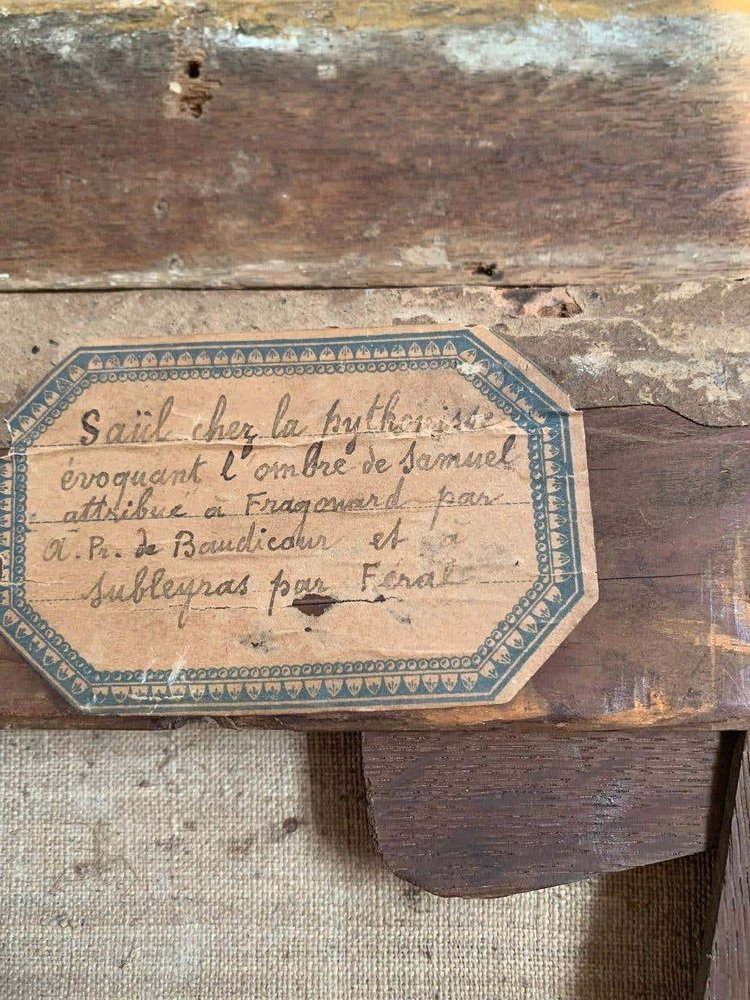 Saül chez la pythonisse
évoquant l'ombre de Samuel
attribué à Fragonard par
A. Pr. de Baudicour et à
Subleyras par Feral